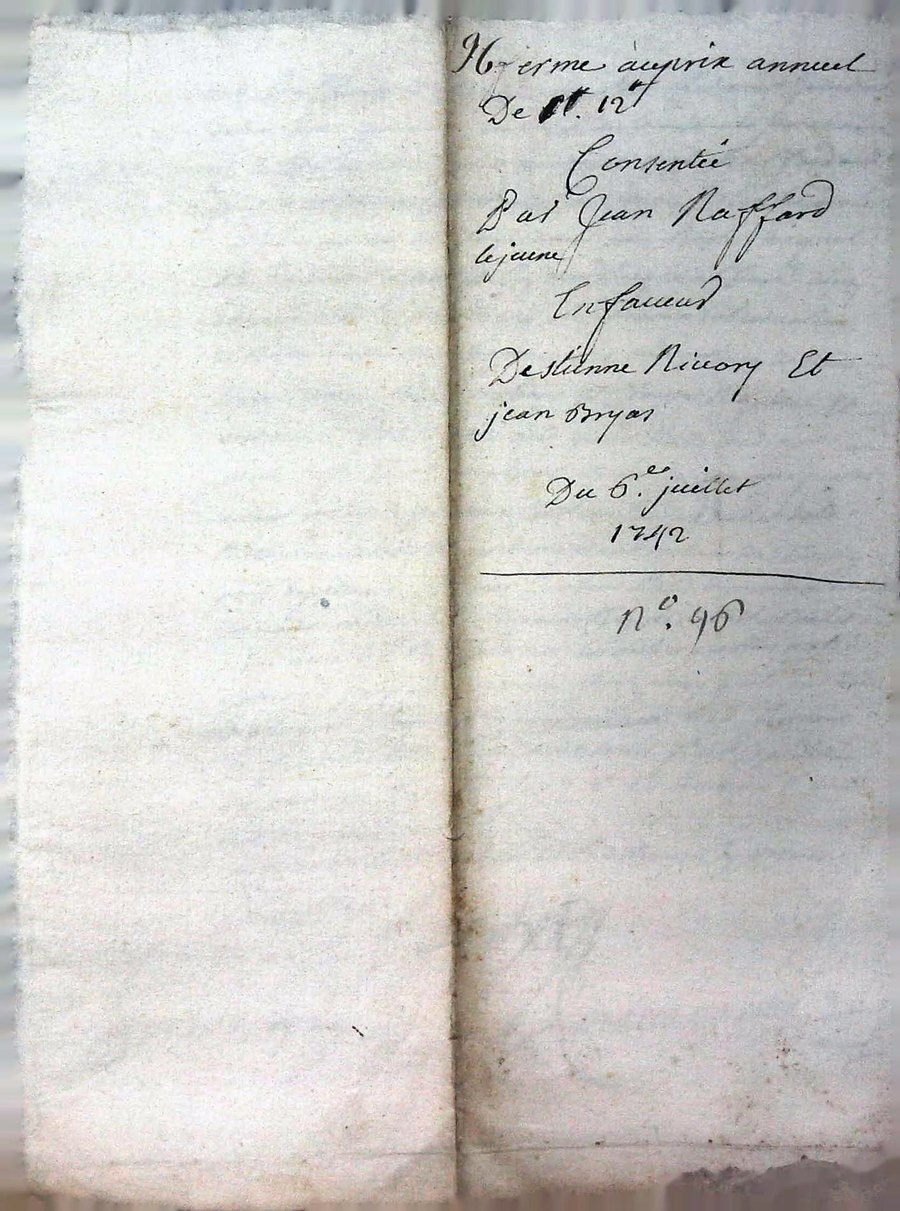 96 ferme auprix annuel
De 12tt
Consentie
Par Jean Raffard
lejeune
Enfaveur
Destienne Rivory Et
jean Bryas
Du 6e. juillet
1742
no. 96